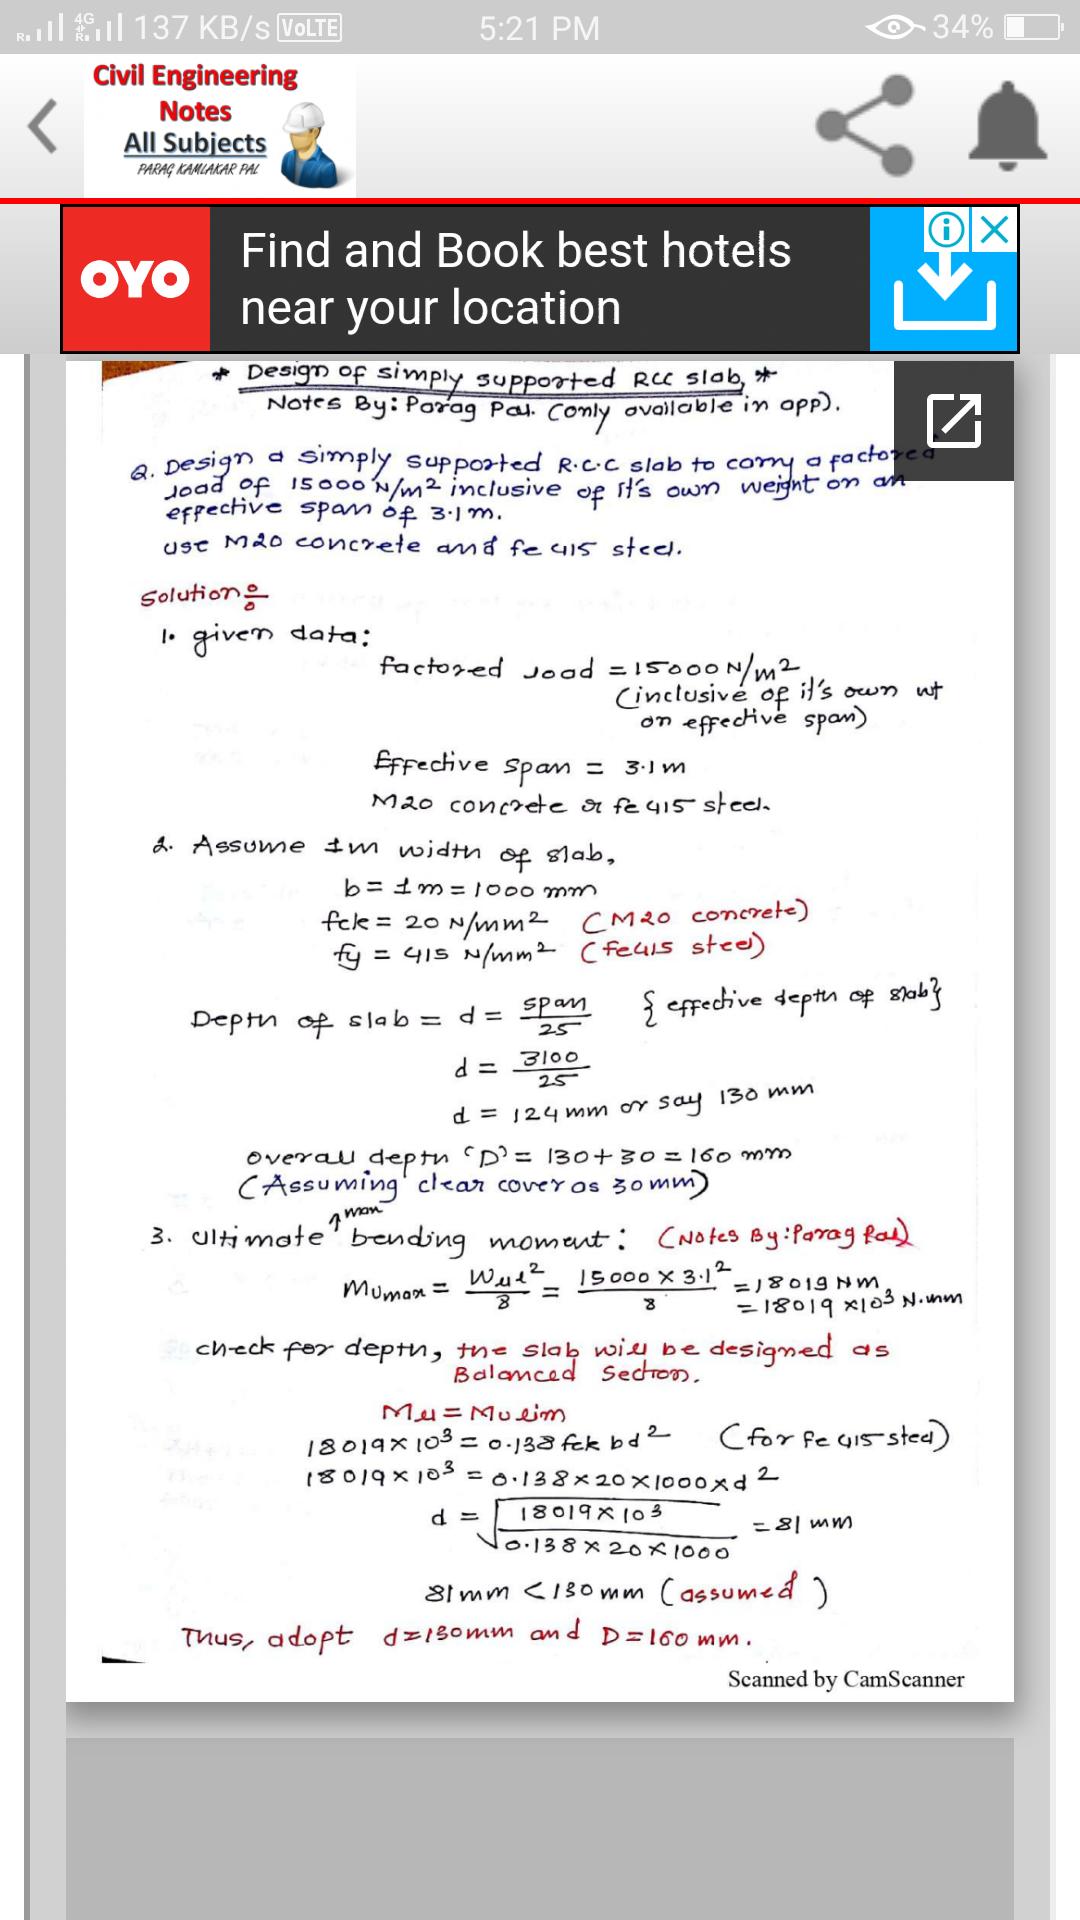 137 KB/s VoLTE 5:21 PM 34%
4G
R
R
Civil Engineering
Notes
All Subjects
PARAG KAMLAKAR PAL
OYO
Find and Book best hotels
near your location
* Design of simply supported RCC slab *
Notes By: Parag Pal. (only available in app).
Q. Design a simply supported R.C.C slab to carry a factored
load of 15000 N/m² inclusive of it's own weight on an
effective span of 3.1m.
use M20 concrete and fe 415 steel.
Solution:
1. given data:
factored load = 15000 N/m²
(inclusive of it's own wt
on effective span)
Effective span = 3.1m
M20 concrete & fe 415 steel.
2. Assume 1m width of slab,
b = 1m = 1000 mm
fck = 20 N/mm² (M20 concrete)
fy = 415 N/mm² (fe415 steel)
Depth of slab = d = span/25 { effective depth of slab}
d = 3100/25
d = 124mm or say 130 mm
overall depth 'D' = 130+30 = 160 mm
(Assuming clear cover as 30mm)
3. ultimate ↑man bending moment: (Notes By: Parag Pal)
Mumax = Wul²/8 = 15000 × 3.1²/8 = 18019 NM
= 18019 ×10³ N.mm
check for depth, the slab will be designed as
Balanced Section.
Mu = Mulim
18019×10³ = 0.138 fck bd² (for fe 415 steel)
18019×10³ = 0.138×20×1000×d²
d = √18019×10³/0.138×20×1000 = 81 mm
81mm < 130mm (assumed)
Thus, adopt d=130mm and D=160 mm.
Scanned by CamScanner